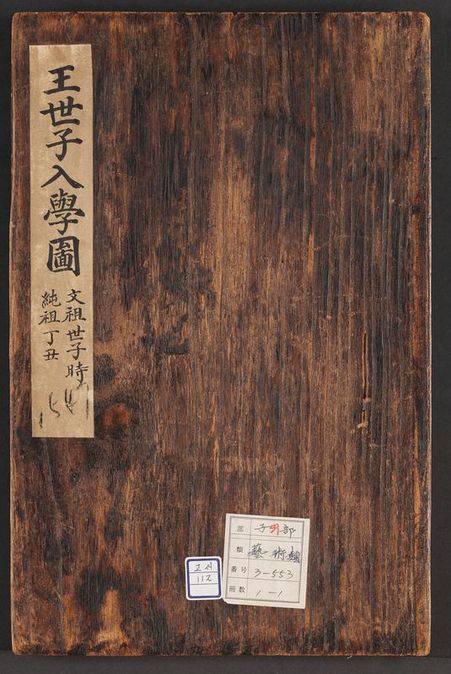 王世子入學圖
文祖世子時
純祖丁丑
고서
112
部 子 部
類 藝術類
番号 3-553
冊数 1-1